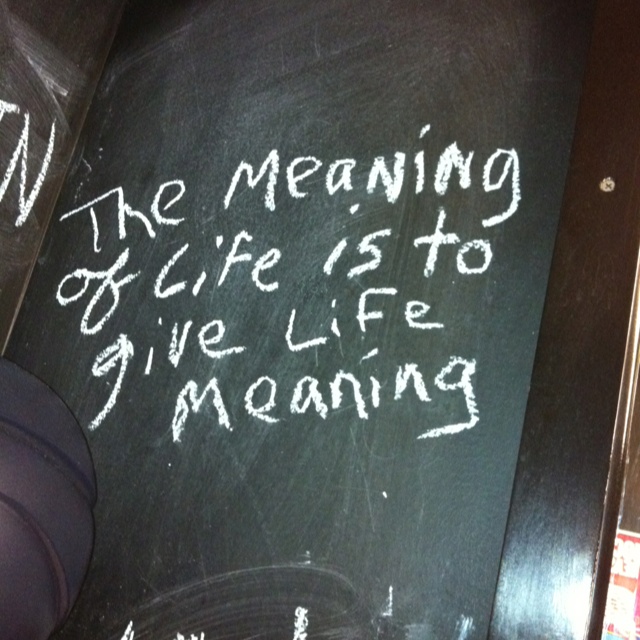 The Meaning
of Life is to
give Life
Meaning